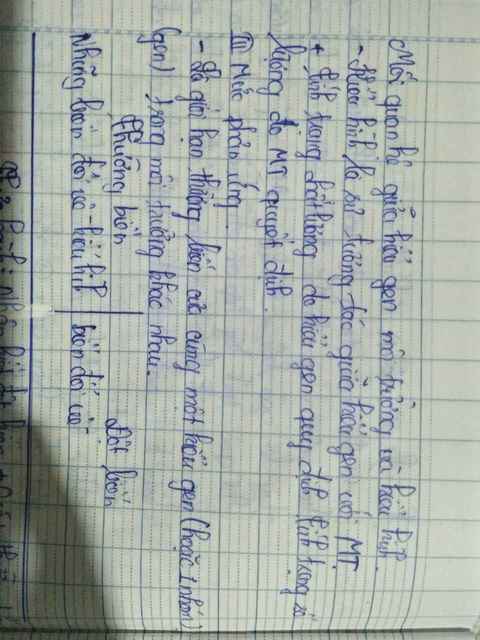 Mối quan hệ giữa kiểu gen môi trường và kiểu hình
- Kiểu hình là sự tương tác giữa kiểu gen với MT
+ tính trạng chất lượng do kiểu gen quy định tính trạng số
lượng do MT quyết định.
III Mức phản ứng
- Là giới hạn thường biến của cùng một kiểu gen (hoặc 1 nhóm
gen) trong môi trường khác nhau.
Thường biến Đột biến
Những biến đổi về kiểu hình biến đổi về